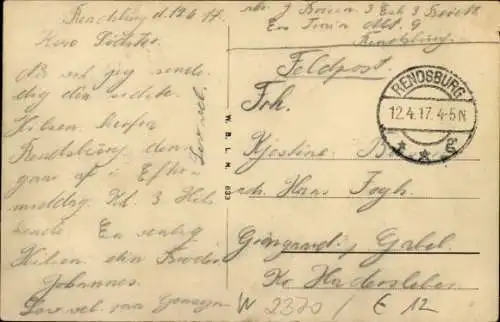 Rendsburg d. 12.4.17.
Kære Søster.
Nu vil jeg sende
dig den sidste
Hilsen herfra
Rendsburg den
gaar af i Efter-
middag Kl. 3
sende En venlig
Hilsen din Broder
Johannes.
Lev vel paa Gensyn
Lev vel.
W. B. L. N. 633
Ers Train Abt. 9
Rendsburg.
Feldpost.
RENDSBURG
12.4.17. 4-5N
* * g
Frh.
Kjestine
adr. Hans Fogh.
Gabel.
Kr. Hadersleben
W 2370 / € 12